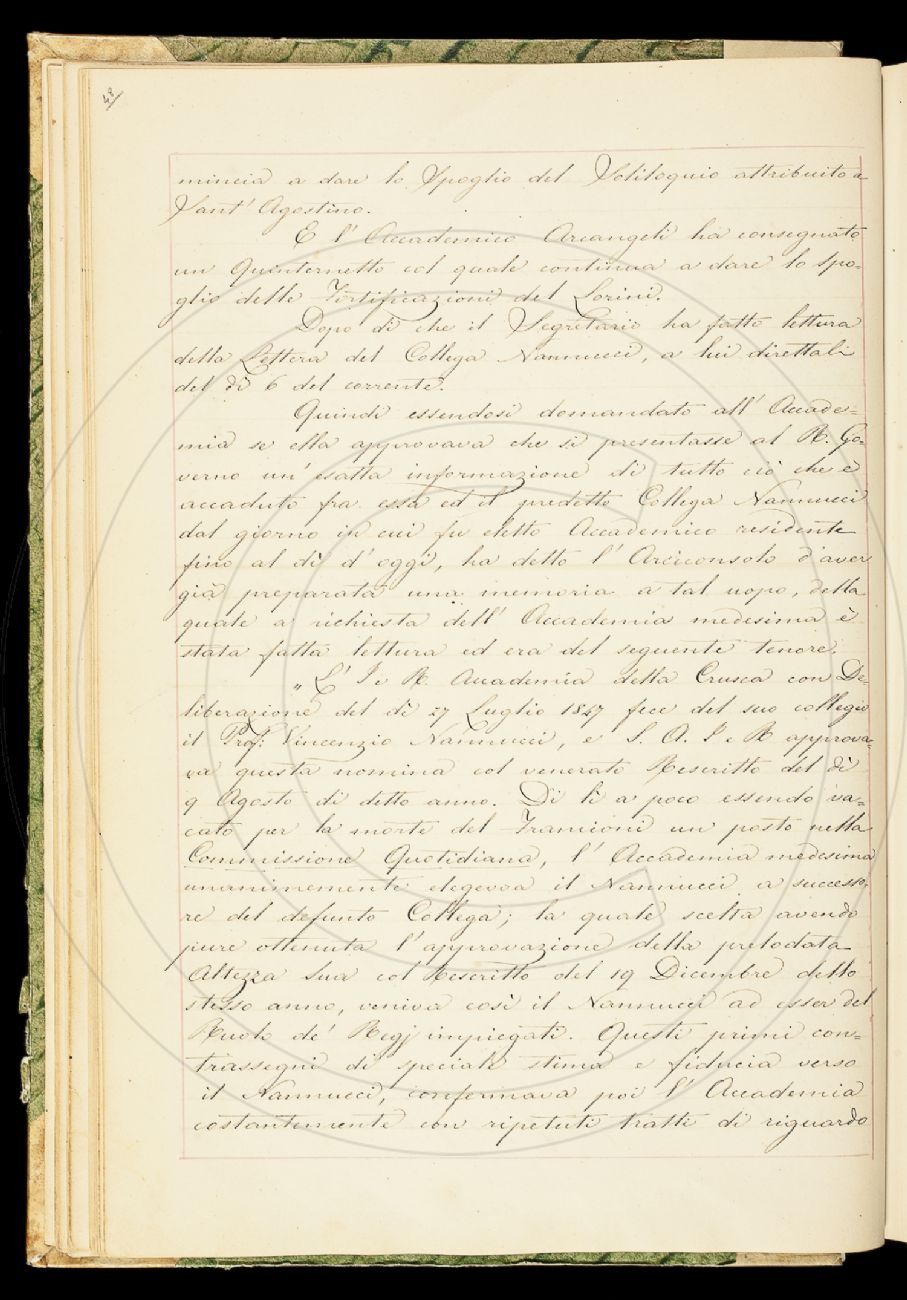 48
mincia a dare lo Spoglio del Soliloquio attribuito a
Sant' Agostino.
E l' Accademico Arcangeli ha consegnato
un Quinternetto col quale continua a dare lo Spo=
glio delle Fortificazioni del Lorini.
Dopo di che il Segretario ha fatto lettura
della Lettera del Collega Nannucci, a lui direttali
del dì 6 del corrente.
Quindi essendosi domandato all' Accade=
mia se ella approvava che si presentasse al R. Go=
verno un' esatta informazione di tutto ciò che è
accaduto fra essa ed il predetto Collega Nannucci
dal giorno in cui fu eletto Accademico residente
fino al dì d' oggi, ha detto l' Arciconsolo d' aver
già preparata una memoria a tal uopo, della
quale a richiesta dell' Accademia medesima è
stata fatta lettura ed era del seguente tenore.
" L' I e R. Accademia della Crusca con De=
liberazione del dì 27 Luglio 1847 fece del suo collegio
il Prof: Vincenzio Nannucci, e S. A. I e R approva=
va questa nomina col venerato Rescritto del dì
9 Agosto di detto anno. Di lì a poco essendo va=
cato per la morte del Francioni un posto nella
Commissione Quotidiana, l' Accademia medesima
unanimemente eleggeva il Nannucci a successo=
re del defunto Collega; la quale scelta avendo
pure ottenuta l' approvazione della prelodata
Altezza Sua col Rescritto del 19 Dicembre dello
stesso anno, veniva così il Nannucci ad esser del
Ruolo de' Regj impiegati. Questi primi con=
trassegni di speciale stima e fiducia verso
il Nannucci, confermava poi l' Accademia
costantemente con ripetuti tratti di riguardo